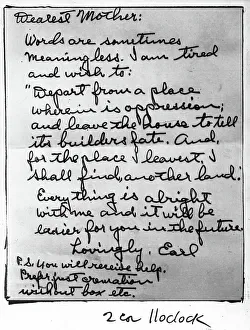 Dearest Mother:
Words are sometimes
meaningless. I am tired
and wish to:
"Depart from a place
wherein is oppression;
and leave the house to tell
its builders fate. And,
for the place I leavest, I
shall find another land.
Everything is alright
with me and it will be
easier for you in the future.
Lovingly, Earl
P.S. You will receive help.
Prefer just cremation
without box etc.
oclock